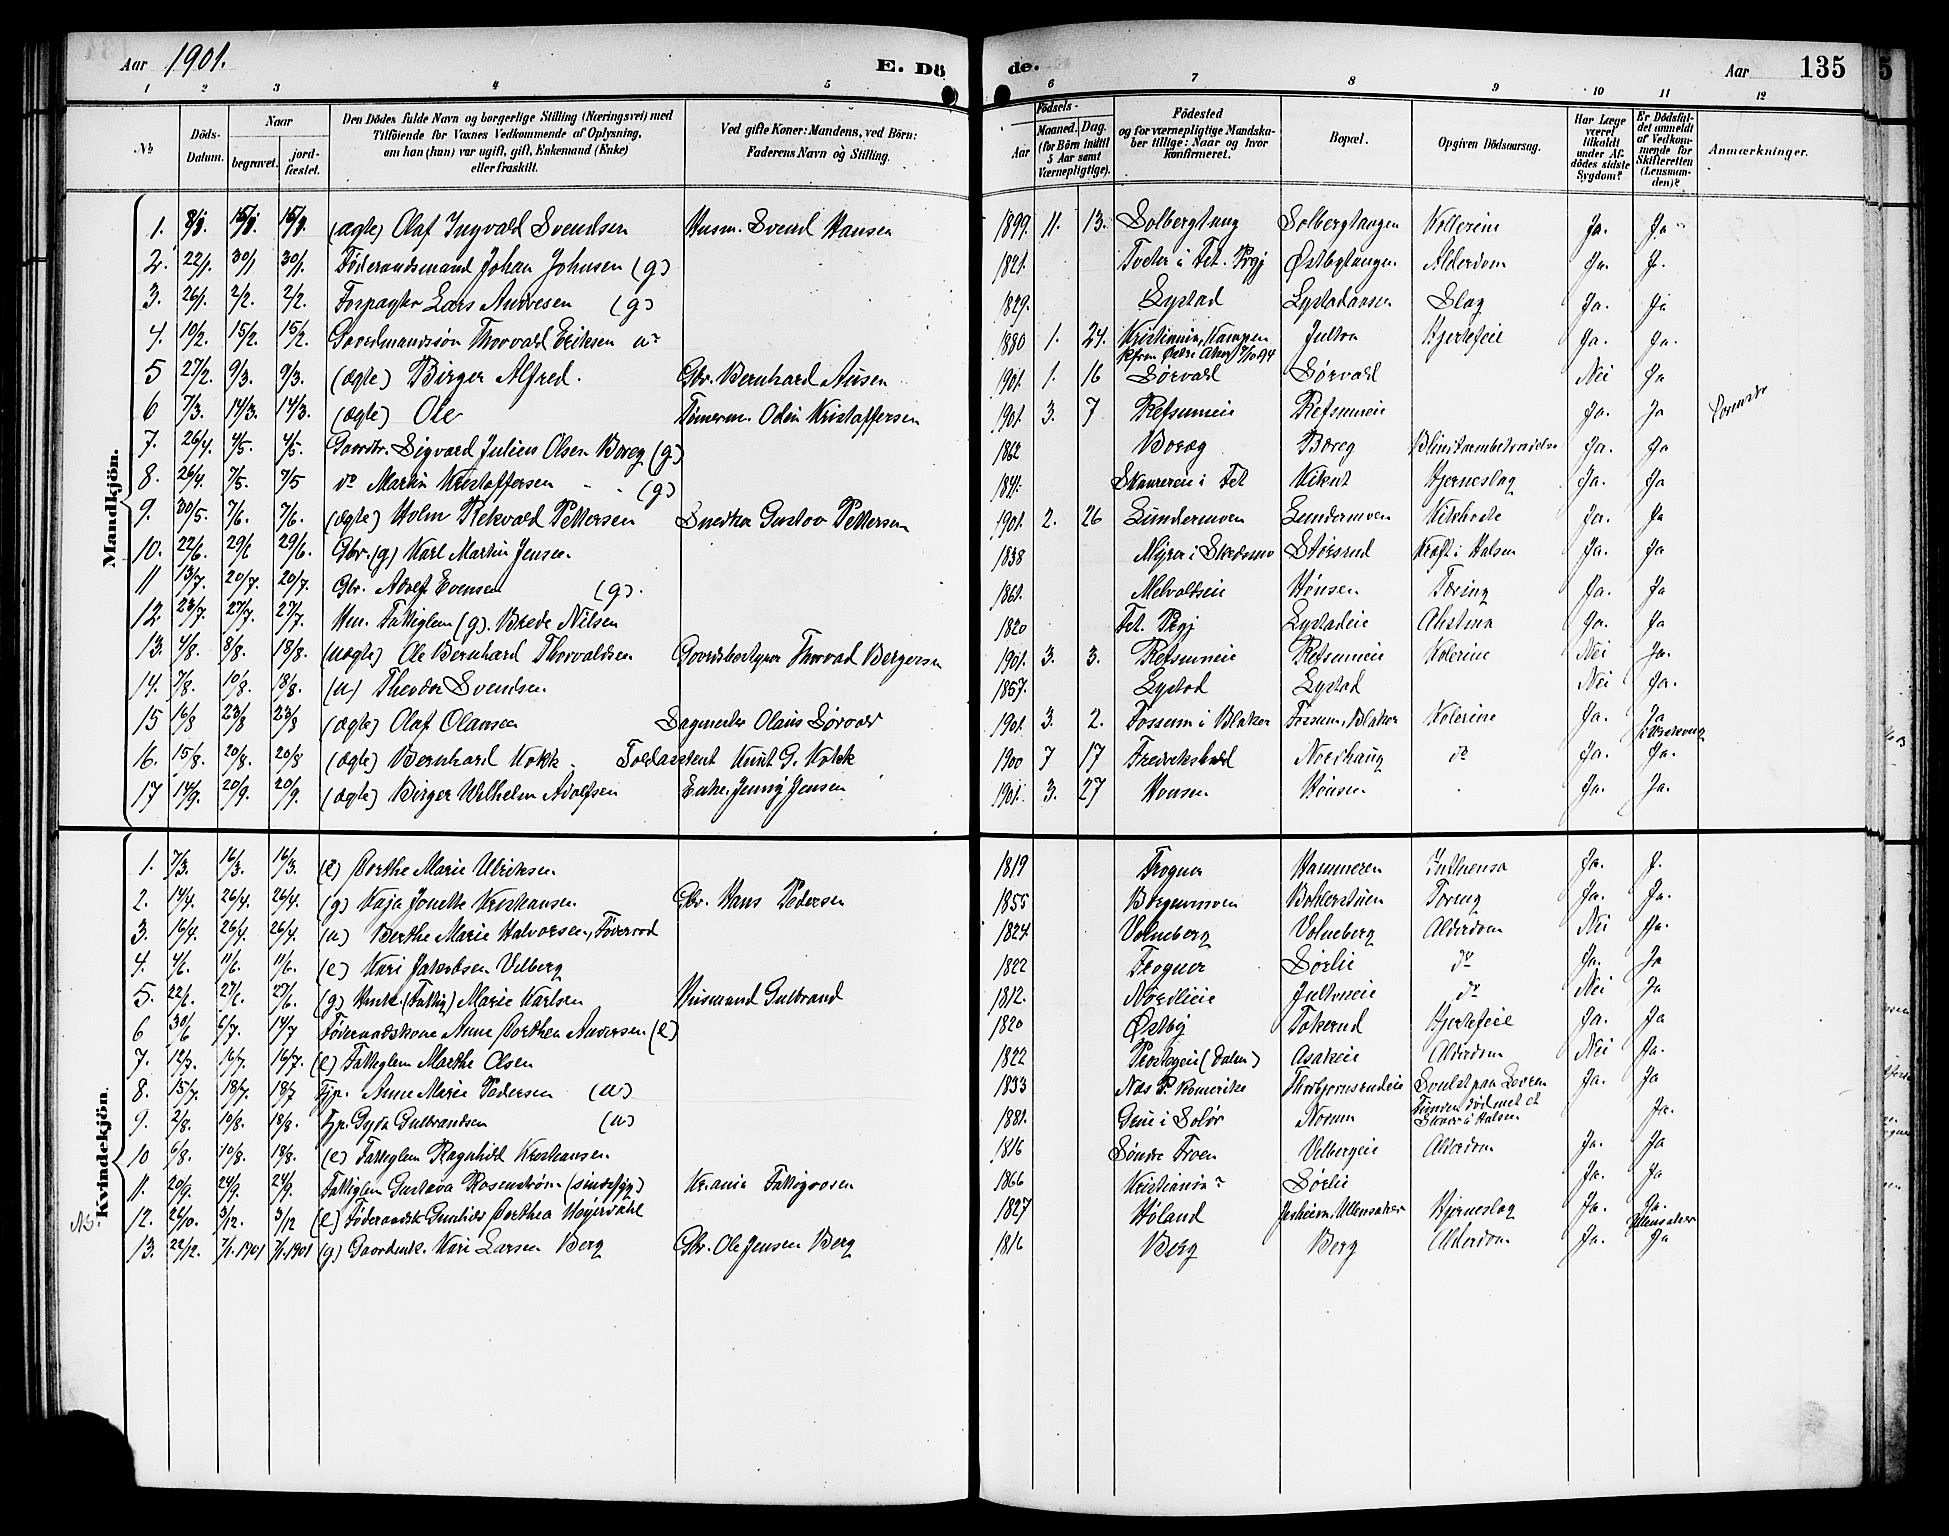 Aar 1901. E. Dö de. Aar 135
1 2 3 4 5 6 7 8 9 10 11 12
No Döds-Datum. Naar begravet. jord-fæstet. Den Dödes fulde Navn og borgerlige Stilling (Næringsvei) med Tilföiende for Voxnes Vedkommende af Oplysning, om han (hun) var ugift, gift, Enkemand (Enke) eller fraskilt. Ved gifte Koner: Mandens, ved Börn: Faderens Navn og Stilling. Födsels- Aar Maaned. Dag. (for Börn indtil 5 Aar samt Værnepligtige). Födested og for værnepligtige Mandska-ber tillige: Naar og hvor konfirmeret. Bopæl. Opgiven Dödsaarsag. Har Læge været tilkaldt under Af-dödes sidste Sygdom? Er Dödsfal-det anmeldt af Vedkom-mende for Skifteretten (Lensman-den)? Anmærkninger.
Mandkjön.
1. 8/1. 15/1. 15/1. (ægte) Olaf Ingvald Svendsen Husm. Svend Hansen 1899. 11. 13. Solbergtang Solbergtangen Kollerine Ja. Ja
2. 22/1. 30/1 30/1. Föderaadsmand Johan Johnsen (g) 1821. i Fet. Prgj Østbytangen Alderdom Ja. J.
3. 26/1. 2/2. 2/2. Forpagter Lars Andresen (g) 1829. Lystad Lystadaasen Slag Ja. Ja
4. 10/2. 15/2. 15/2. Gaardmandssön Thorvald Eriksen 1880 1. 24. Kristiania, Kampen Jultou Hjertefeil Ja. Ja.
5 27/2. 9/3. 9/3. (ægte) Birger Alfred. Gbr. Bernhard 1901. 1. 16 Sörvald Sörvald Nei Ja
6 7/3. 14/3. 14/3. (ægte) Ole Tömerm. Odin Kristoffersen 1901. 3. 7 Refsumeie Refsumeie Ja. Ja
7. 26/4. 4/5. 4/5. Gaardbr. Sigvard Julius Olsen Boreg (g) 1862 Boreg Boreg Ja. Ja
8. 26/4. 7/5. 7/5 do Martin Kristoffersen (g) 1841. i Fet Hjerneslag Ja. Ja
9. 30/5. 7/6. 7/6. (ægte) Holm Rekvald Pettersen Snedker Gustav Pettersen 1901. 2. 26 Lundermoen Lundermoen Kikhoste Ja. Ja
10. 22/6. 29/6 29/6. Gbr. (g) Karl Martin Jensen 1838 Myrer i Skedsmo Störsrud Kræft i Halsen Ja. Ja
11 13/7. 20/7. 20/7. Gbr. Adolf Evensen (g). 1861. Melvoldeie Hönsen Tæring Ja. Ja
12 23/7. 27/7. 27/7. Hm. Fattiglem (g). Brede Nilsen 1820 Fet. Prgj Lystadeie Ja. Ja
13. 4/8. 8/8. 18/8. (uægte) Ole Bernhard Thorvaldsen Gaardsbestyrer Thorvald Bergersen 1901. 3. 3. Refsumeie Refsumeie Kolerine Nei Ja.
14. 7/8. 10/8. 18/8. (u) Theodor Svendsen. 1857. Lystad Lystad Nei Ja.
15 16/8 23/8 23/8 (ægte) Olaf Olausen Sagmester Olaus Sörvald 1901. 3. 2. Fossum i Blaker Fossum, Blaker Kolerine Ja. Ja
16. 15/8. 20/8. 20/8 (ægte) Bernhard Kokk. Toldassistent Knut G. Kokk 1900 7 17 Fredrikshald Nordhaug do Ja. Ja.
17 14/9. 20/9. 20/9. (ægte) Birger Wilhelm Adolfsen Enke, Jenny Jensen 1901. 3. 27 Hönsen Hönsen Ja. Ja.
Kvindekjön.
1. 7/3. 16/3. 16/3. (e) Dorthe Marie Ulriksen 1819 Frogner Hammeren Influensa Ja. J.
2. 14/4. 26/4. 26/4. (g) Kaja Jonette Kristiansen Gbr. Hans Pedersen 1855 Böhlerstuen Tæring Ja. Ja.
3. 16/4. 26/4. 26/4. (u) Berthe Marie Halvorsen, Föderaad 1824. Valneberg Valneberg Alderdom Nei Ja.
4. 4/6. 11/6. 11/6. (e) Kari Jakobsen Velberg 1822 Frogner Sörlie do Ja. Ja
5. 22/6. 27/6. 27/6. (g) (Fattig) Marie Karlsen Husmand Gulbrand 1812. Nordlieie Jultoneie do Nei Ja
6 30/6 6/7. 14/7 Föderaadskone Anne Dorthea Andersen (e) 1820 Østby Tokerud Hjertefeil Ja. Ja
7. 12/7. 16/7. 16/7. (e) Fattiglem Marthe Olsen 1822 (Dalen) Asakeie Alderdom Nei Ja.
8. 15/7. 18/7. 18/7 Tjp. Anne Marie Pedersen (u) 1833 Nes P. Romerike Thorbjörnsrudeie Ja. Ja
9. 2/8. 10/8. 18/8. Tjp. Gyda Gulbrandsen (u) 1881. Grue i Solör Norum Funden död med et Skaar i Halsen Ja.
10 6/8. 10/8. 18/8. (e) Fattiglem Ragnhild Kristiansen 1816 Söndre Froen Velbergeie Alderdom Ja. Ja
11. 20/9. 24/9. 24/9. Fattiglem Gustava Rosenström (sindssyg) Kr.ania Fattigvæsen 1866 Kristiania Sörlie Ja. Ja
12. 3/12. 3/12 (e) Föderaadsk. Gunhild Dorthea Höyerdahl 1827 Höland Jesheim, Ullensaker Hjerneslag Ja. Ja. Ullensaker
13. 22/12. 7/1.1901 7/1.1901 (g) Gaardmk. Kari Larsen Berg Gbr. Ole Jensen Berg 1816 Berg Berg Alderdom Ja. Ja